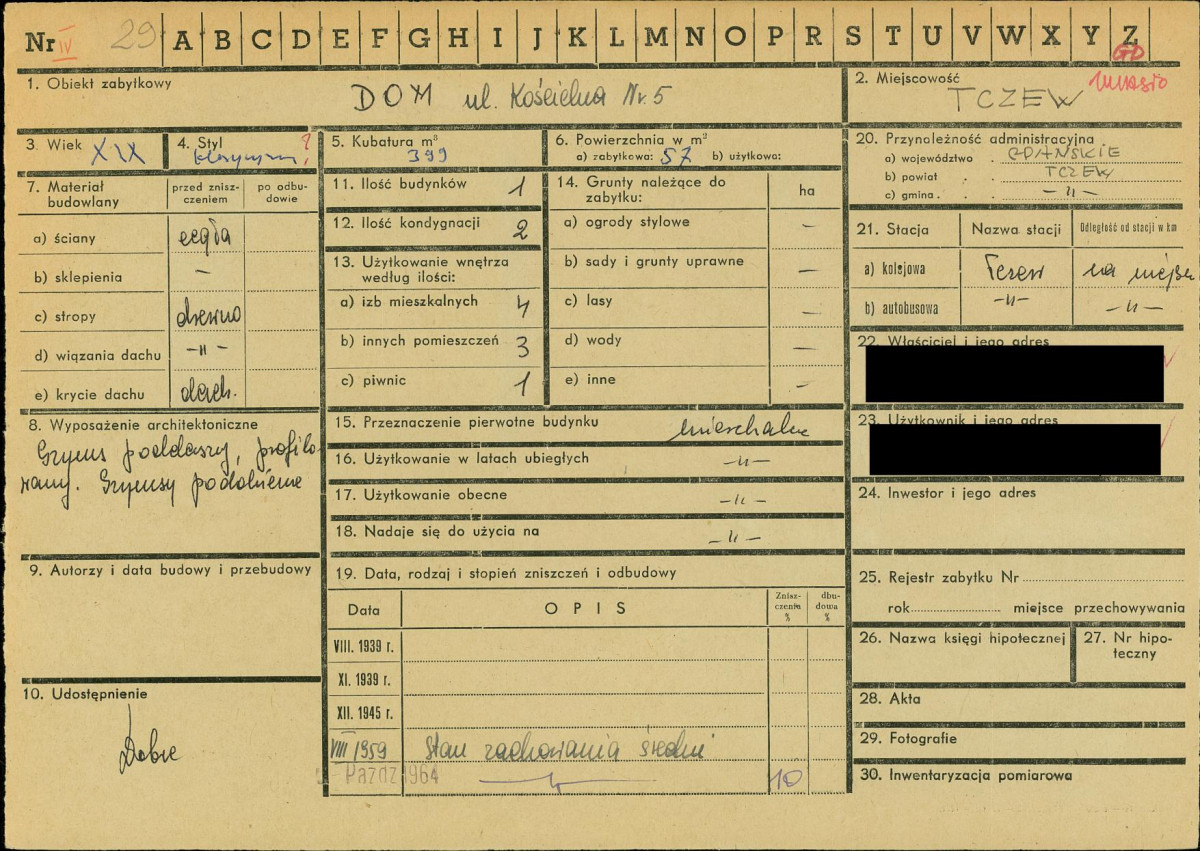 Nr IV 29 A B C D E F G H I J K L M N O P R S T U V W X Y Z
GD
1. Obiekt zabytkowy DOM ul. Kościelna Nr. 5
2. Miejscowość miasto
TCZEW
3. Wiek XIX
4. Styl ?
5. Kubatura m³ 399
6. Powierzchnia w m²
a) zabytkowa: 57 b) użytkowa:
7. Materiał budowlany
przed zniszczeniem
po odbudowie
a) ściany cegła
b) sklepienia –
c) stropy drewno
d) wiązania dachu –"–
e) krycie dachu dach.
8. Wyposażenie architektoniczne
Gzyms poddaszy, profilo-
wany. Gzymsy podobienne
9. Autorzy i data budowy i przebudowy
10. Udostępnienie
Dobre
11. Ilość budynków 1
12. Ilość kondygnacji 2
13. Użytkowanie wnętrza
według ilości:
a) izb mieszkalnych 4
b) innych pomieszczeń 3
c) piwnic 1
14. Grunty należące do
zabytku: ha
a) ogrody stylowe –
b) sady i grunty uprawne –
c) lasy –
d) wody –
e) inne –
15. Przeznaczenie pierwotne budynku mieszkalne
16. Użytkowanie w latach ubiegłych –"–
17. Użytkowanie obecne –"–
18. Nadaje się do użycia na –"–
19. Data, rodzaj i stopień zniszczeń i odbudowy
Data OPIS Zniszczenia % dbudowa %
VIII. 1939 r.
XI. 1939 r.
XII. 1945 r.
VIII 1959 Stan zachowania średni
Paźdz 1964 10
20. Przynależność administracyjna
a) województwo . GDAŃSKIE
b) powiat . . TCZEW
c) gmina . . –"–
21. Stacja Nazwa stacji Odległość od stacji w km
a) kolejowa Tczew na miejscu
b) autobusowa –"– –"–
22. Właściciel i jego adres
23. Użytkownik i jego adres
24. Inwestor i jego adres
25. Rejestr zabytku Nr
rok miejsce przechowywania
26. Nazwa księgi hipotecznej
27. Nr hipoteczny
28. Akta
29. Fotografie
30. Inwentaryzacja pomiarowa